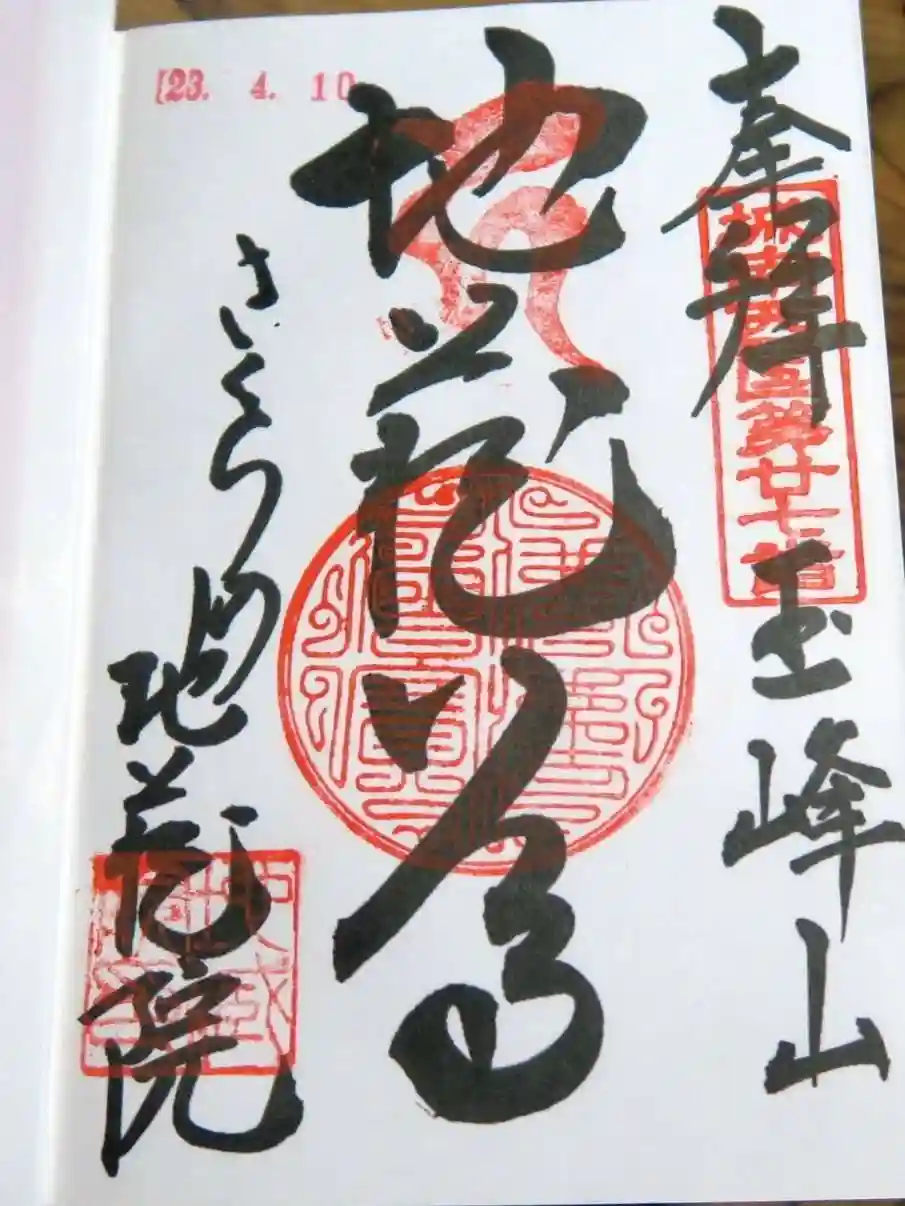 奉拝 玉峰山
第廿七番
地蔵尊
23. 4. 10
さくらの地蔵院